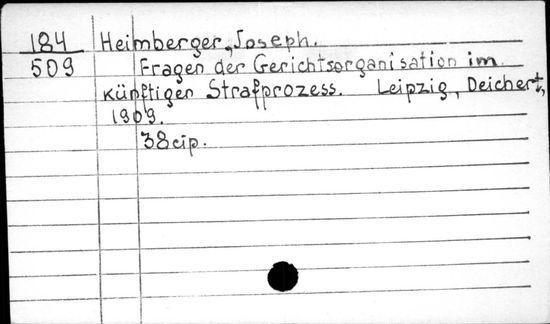 184 Heimberger, Joseph.
509 Fragen der Gerichtsorganisation im
künftigen Strafprozess. Leipzig, Deichert,
1909.
38 стр.